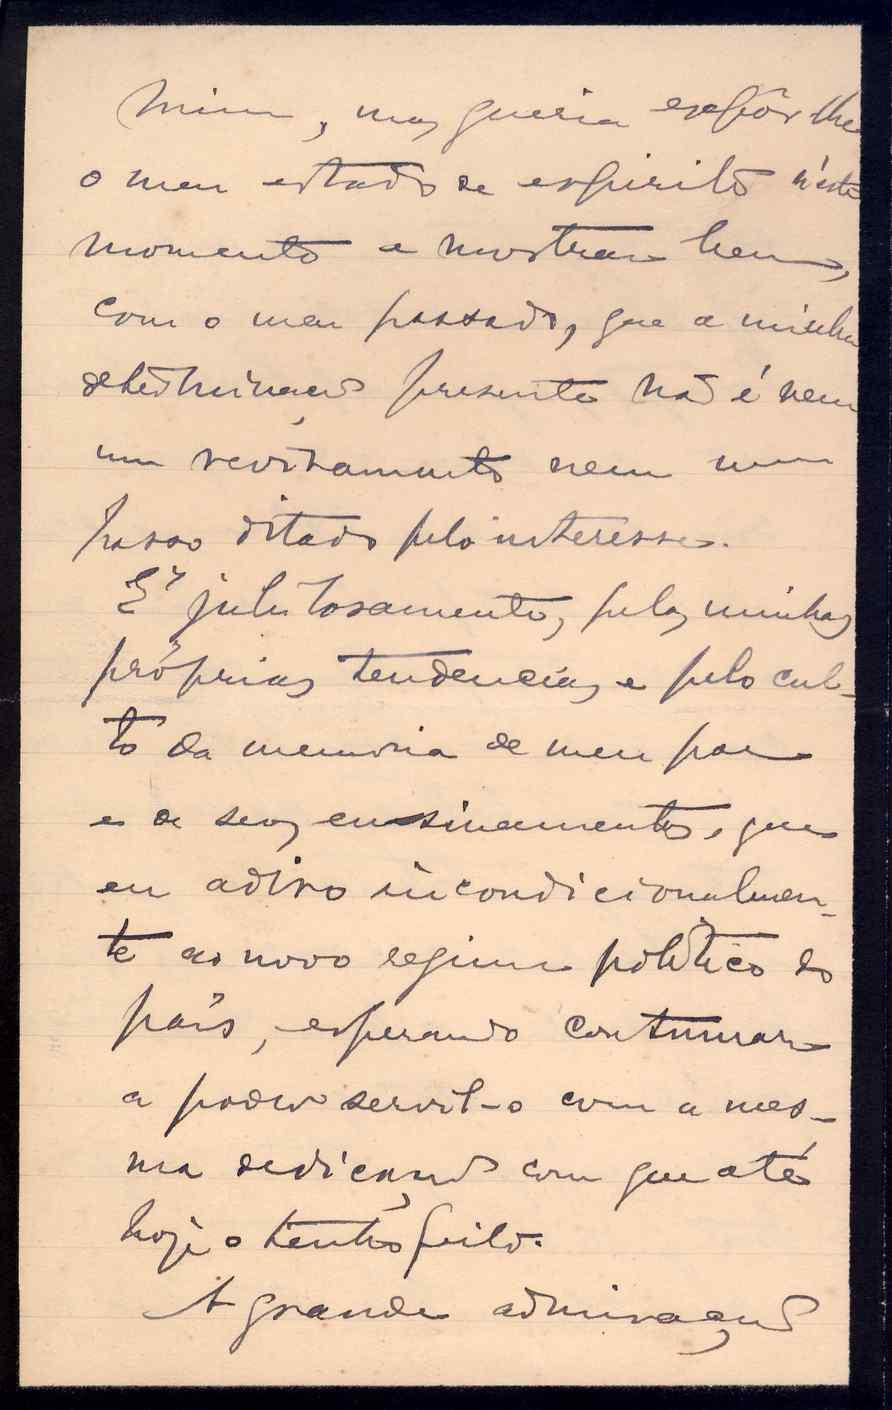 mim, mas queria expôr-lhe
o meu estado de espirito n'este
momento e mostrar bem,
com o meu passado, que a minha
determinação presente não é nem
um reviramento nem um
passo ditado pelo interesse.
É jubilosamente, pelas minhas
próprias tendencias e pelo cul-
to da memoria de meu pae
e de seus ensinamentos, que
eu adiro incondicionalmen-
te ao novo regimen politico do
país, esperando continuar
a poder servil-o com a mes-
ma dedicação com que até
hoje o tenho feito.
A grande admiração